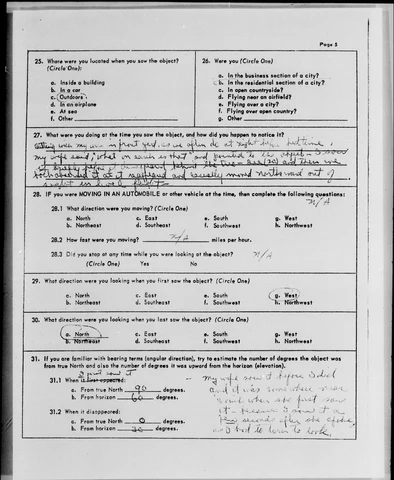 Page 5
25. Where were you located when you saw the object?
(Circle One):
a. Inside a building
b. In a car
c. Outdoors
d. In an airplane
e. At sea
f. Other
26. Were you (Circle One)
a. In the business section of a city?
b. In the residential section of a city?
c. In open countryside?
d. Flying near an airfield?
e. Flying over a city?
f. Flying over open country?
g. Other
27. What were you doing at the time you saw the object, and how did you happen to notice it?
with my wife in front yard, as we often do at night
my wife said, "what on earth is that" and pointed to the
and then we
it as it reappeared and moved northward out of
sight in level flight
28. IF you were MOVING IN AN AUTOMOBILE or other vehicle at the time, then complete the following questions:
N/A
28.1 What direction were you moving? (Circle One)
a. North c. East e. South g. West
b. Northeast d. Southeast f. Southwest h. Northwest
28.2 How fast were you moving? N/A miles per hour.
28.3 Did you stop at any time while you were looking at the object? N/A
(Circle One) Yes No
29. What direction were you looking when you first saw the object? (Circle One)
a. North c. East e. South g. West
b. Northeast d. Southeast f. Southwest h. Northwest
30. What direction were you looking when you last saw the object? (Circle One)
a. North c. East e. South g. West
b. Northeast d. Southeast f. Southwest h. Northwest
31. If you are familiar with bearing terms (angular direction), try to estimate the number of degrees the object was
from true North and also the number of degrees it was upward from the horizon (elevation).
I first saw it
31.1 When it first appeared:
a. From true North 90 degrees.
b. From horizon 60 degrees.
31.2 When it disappeared:
a. From true North 0 degrees.
b. From horizon 20 degrees.
- my wife saw it before I did
and it was somewhere near
when she first saw
it - because I saw it a
few seconds after she spoke,
as I had to turn to look.